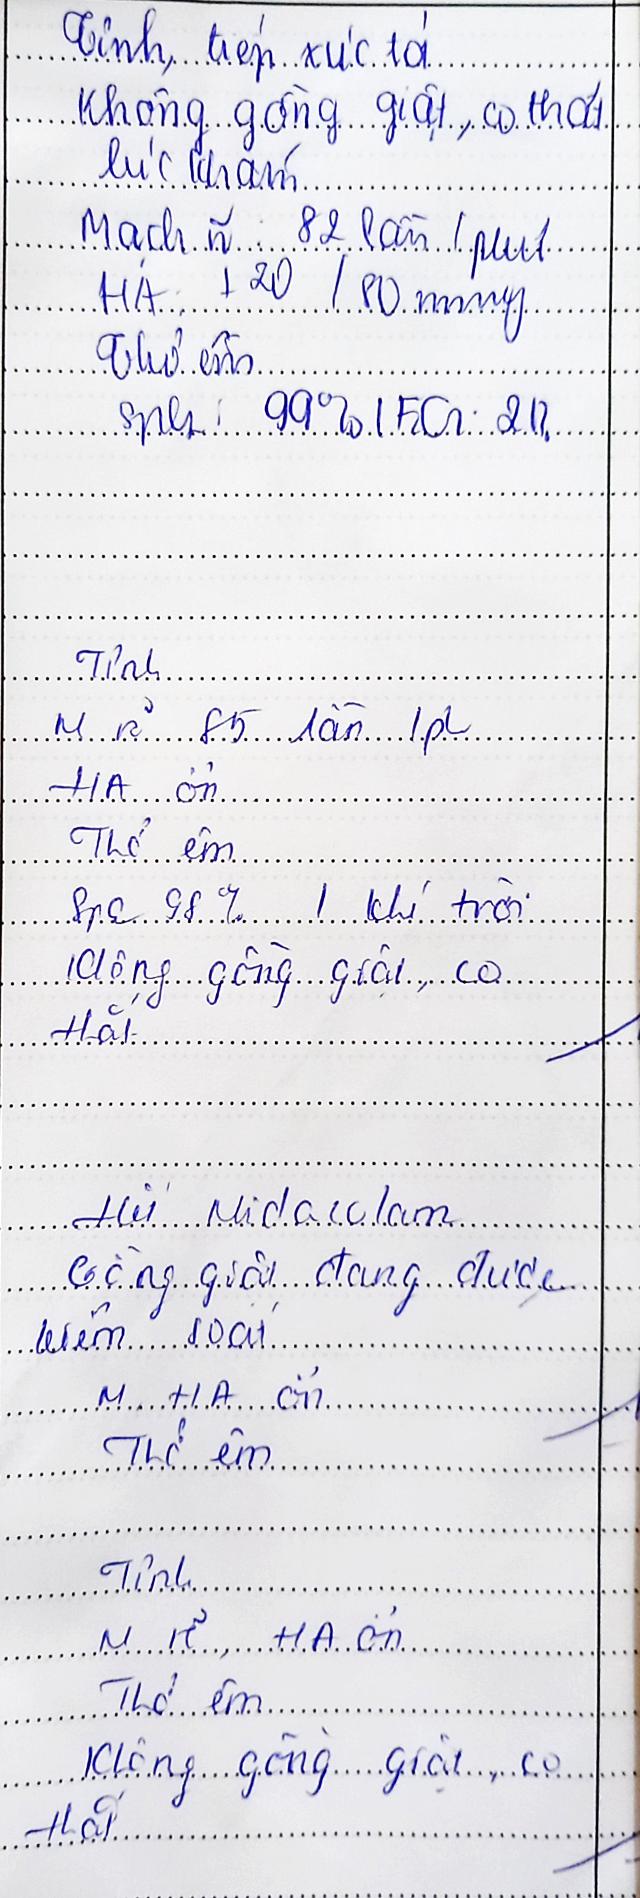 Tỉnh, tiếp xúc tố
Không gồng giật, co thắt
lúc khám
Mạch rõ : 82 lần / phút
HA : 120 / 80 mmHg
Thở êm
SpO2 : 99% / FiO2 : 21%
Tỉnh
M rõ 85 lần /ph
HA ổn
Thở êm
SpO2 98% / khí trời
Không gồng giật, co
thắt
Midazolam
Gồng giật đang được
kiểm soát
M, HA ổn
Thở êm
Tỉnh
M rõ, HA ổn
Thở êm
Không gồng giật, co
thắt